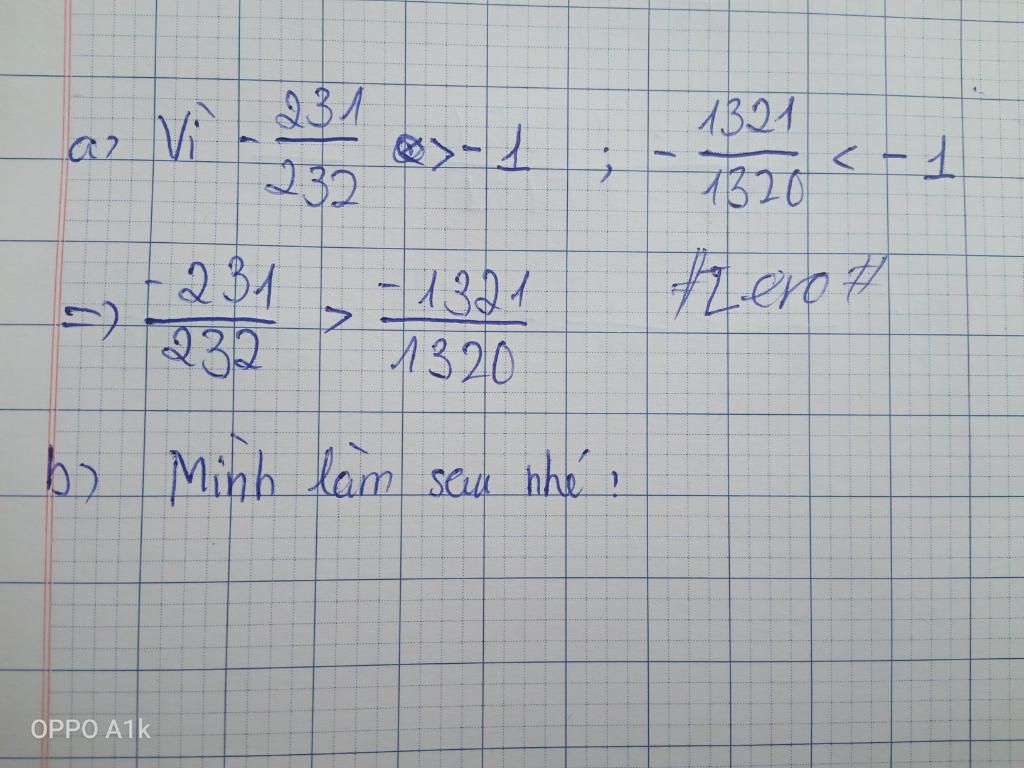 a) Vì - 231/232 > - 1 ; - 1321/1320 < - 1
=) -231/232 > -1321/1320 #Zero#
b) Mình làm sau nhé !
OPPO A1k